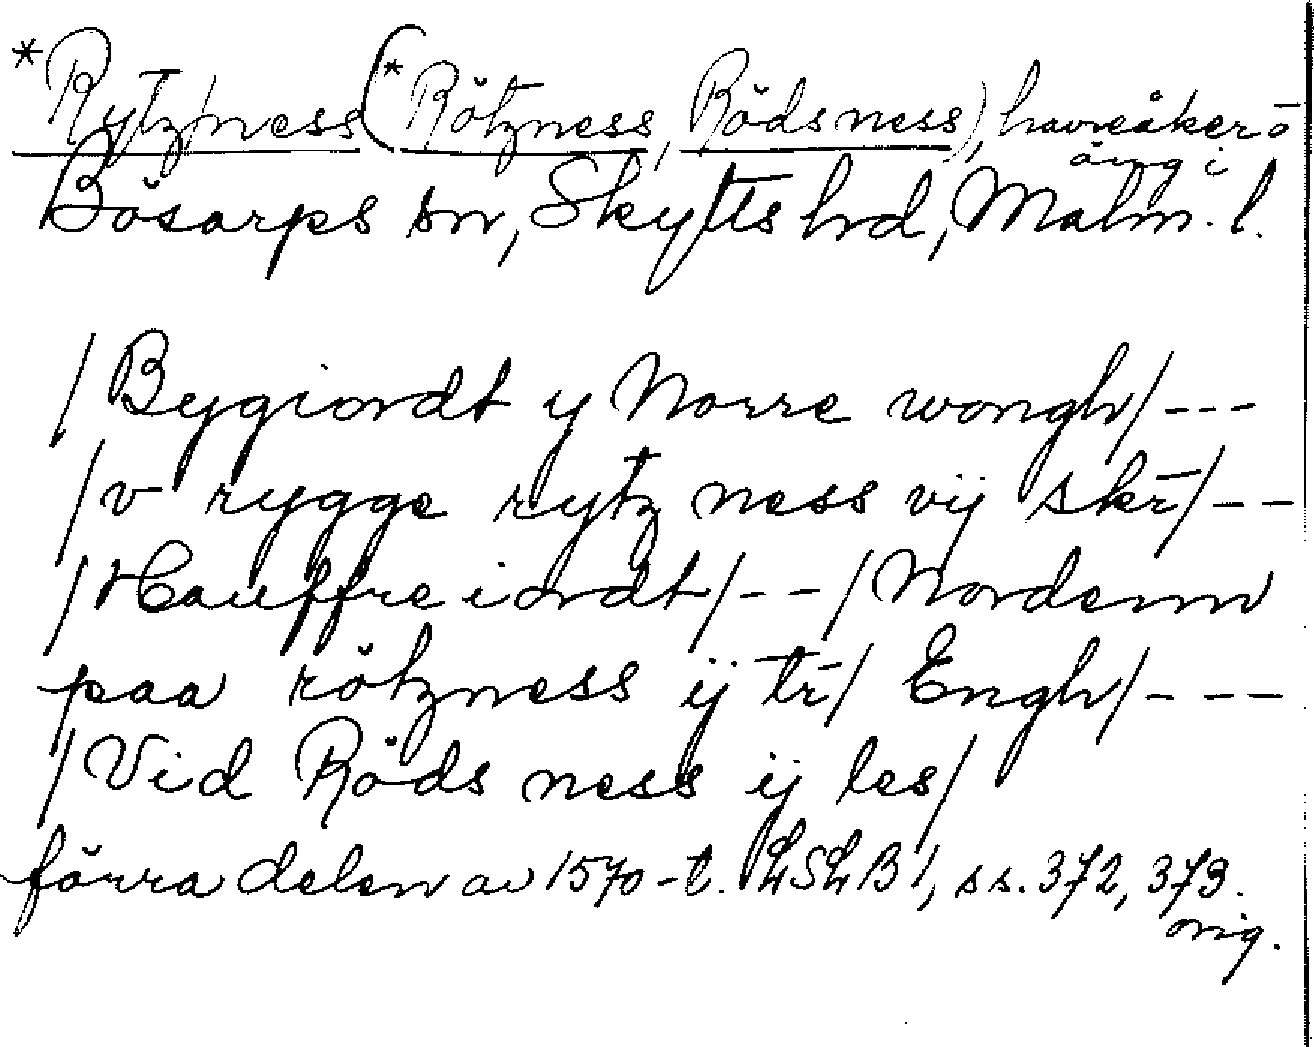 *Rytz/ness (*Rötzness, Rödsness), havreåker o
äng i
Bösarps sn, Skytts hd, Malm. l.
/Bygiordt y Norre wongh/---
/v rygge rytz ness vij skr̄/--
/Hauffre iordt/--/Nordenn
paa rötzness ij tr̄/ Engh/---
/Vid Röds ness ij les/
förra delen av 1570-t. LSLB1, ss. 372, 373.
orig.